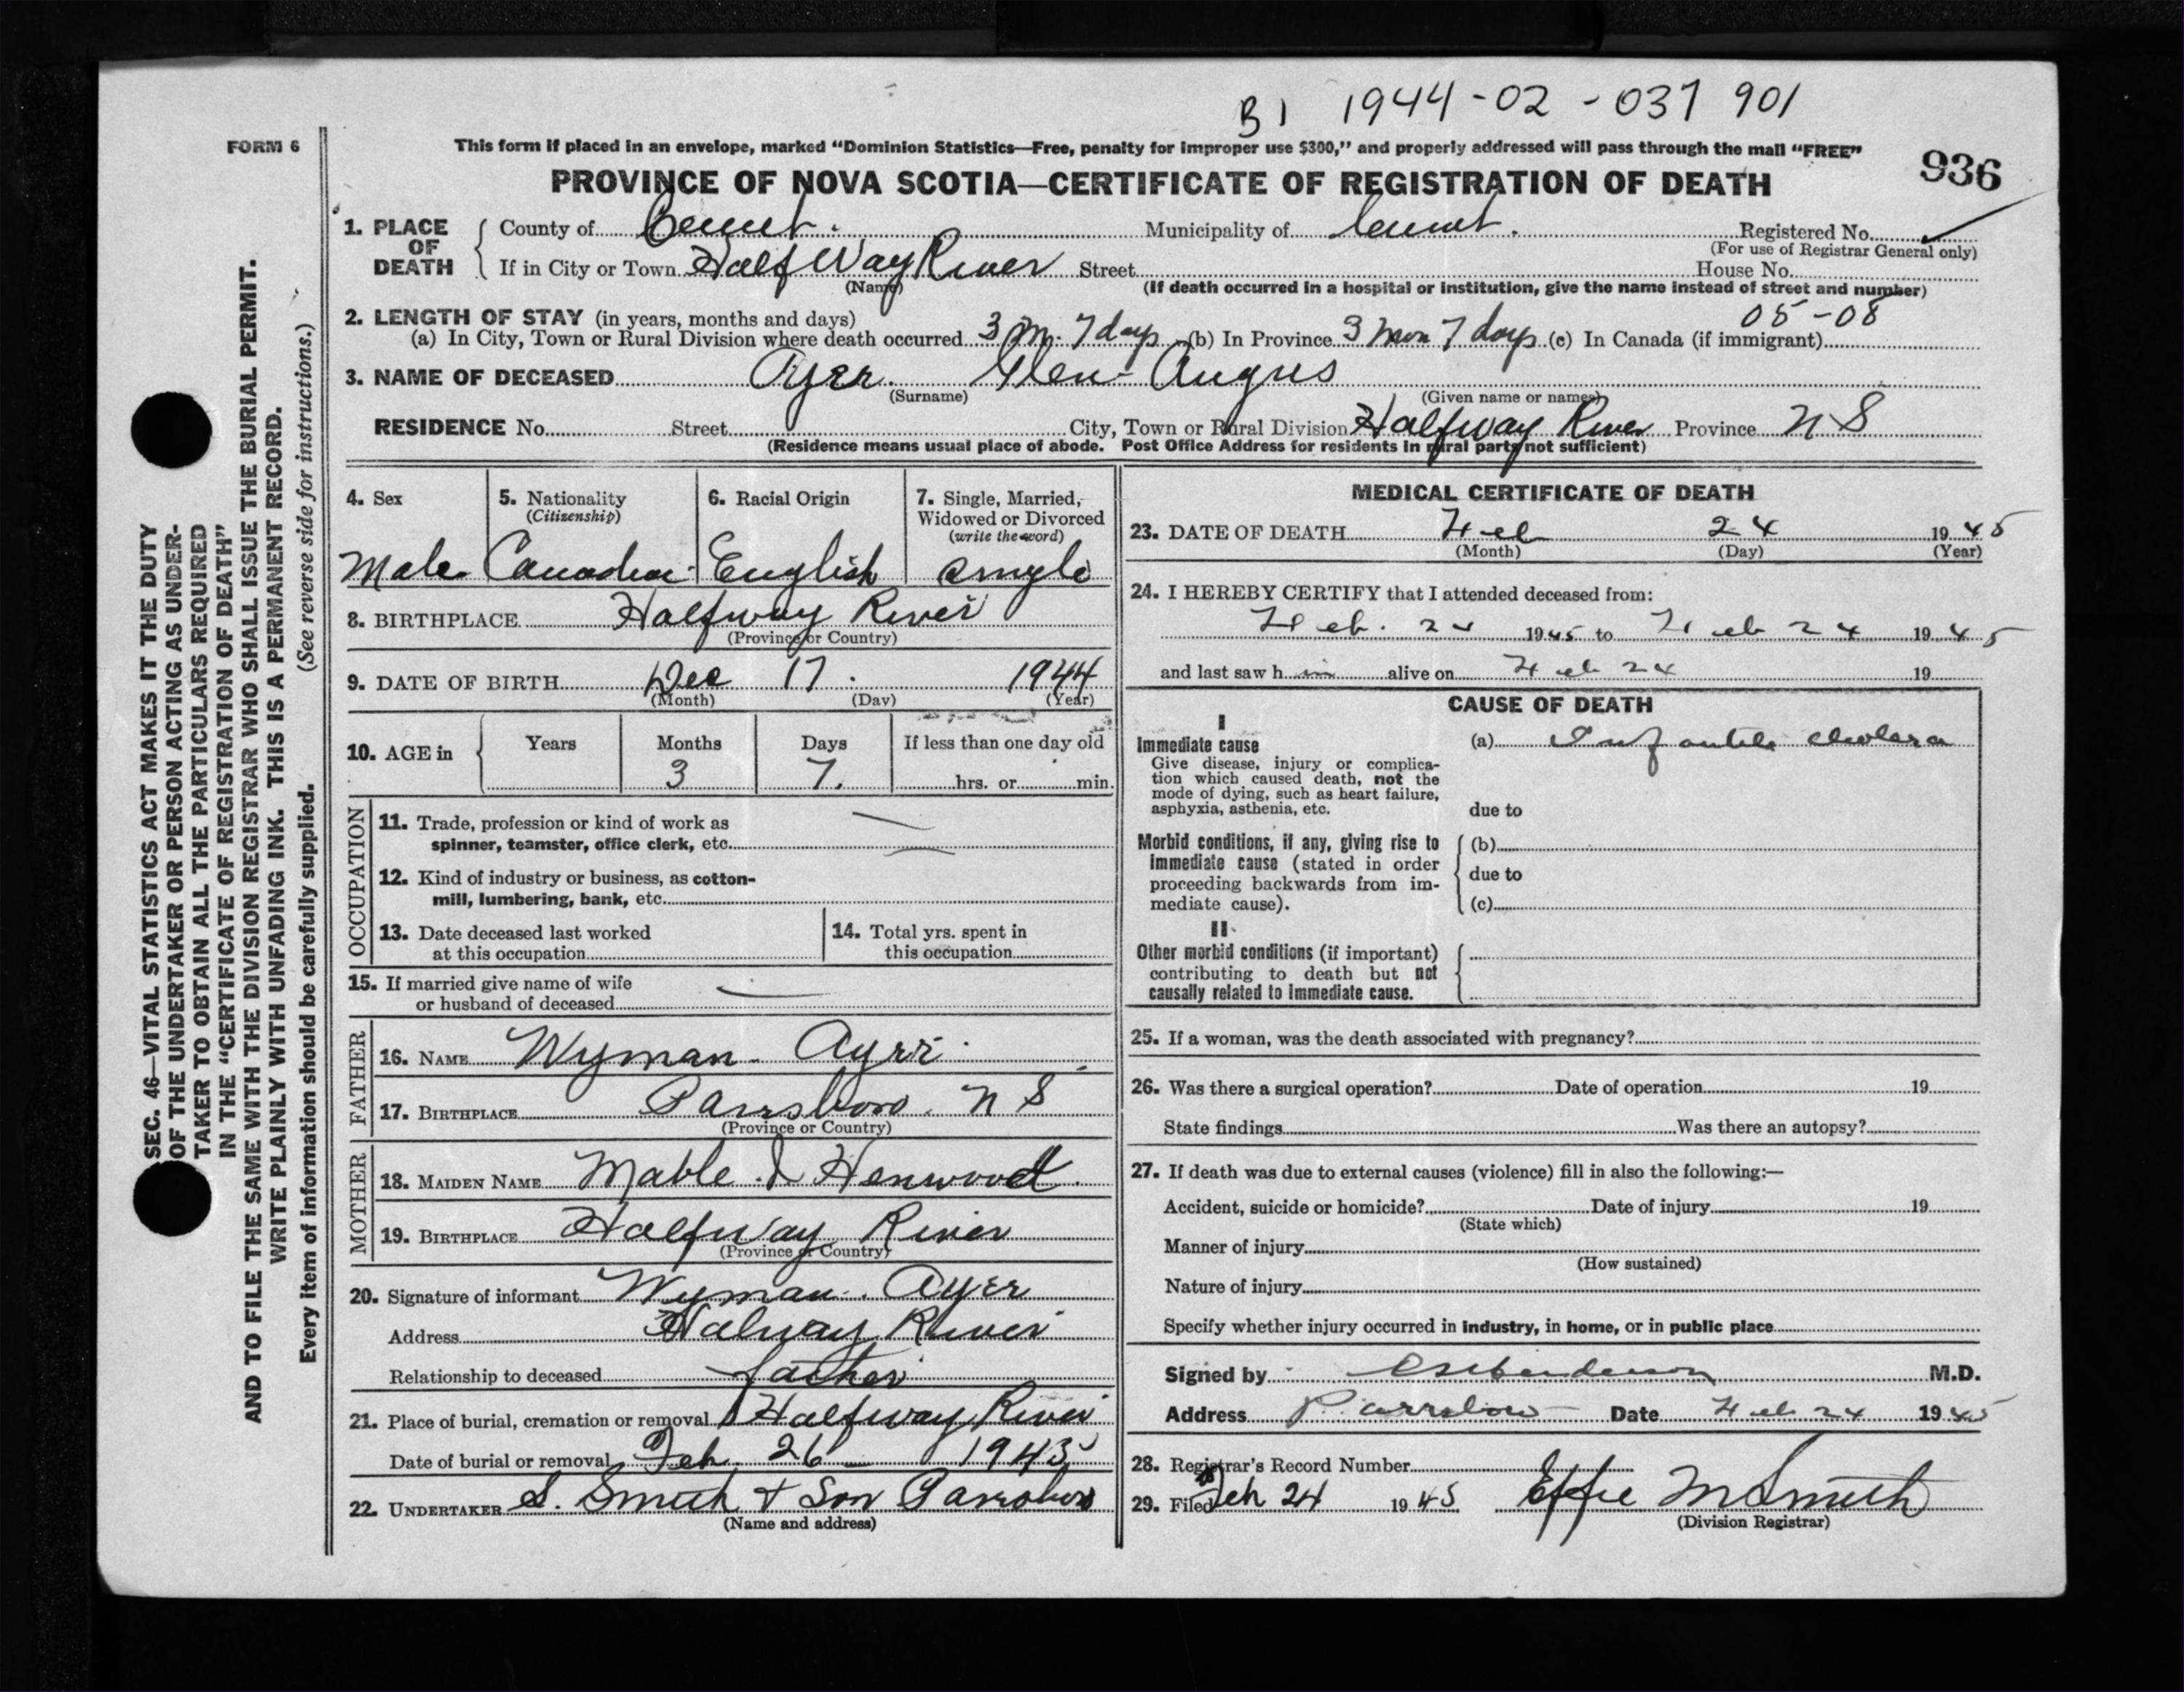 B1 1944-02-037 901
FORM 6
This form if placed in an envelope, marked "Dominion Statistics—Free, penalty for improper use $300," and properly addressed will pass through the mail "FREE"
936
PROVINCE OF NOVA SCOTIA—CERTIFICATE OF REGISTRATION OF DEATH
1. PLACE OF DEATH
County of Cumt. Municipality of Cumt. Registered No.
(For use of Registrar General only)
If in City or Town HalfWay River Street House No.
(Name) (If death occurred in a hospital or institution, give the name instead of street and number)
2. LENGTH OF STAY (in years, months and days) 05-08
(a) In City, Town or Rural Division where death occurred 3 m. 7 days (b) In Province 3 mon 7 days (c) In Canada (if immigrant)
3. NAME OF DECEASED Ayer. Glen Angus
(Surname) (Given name or names)
RESIDENCE No. Street City, Town or Rural Division Halfway River Province N S
(Residence means usual place of abode. Post Office Address for residents in rural parts not sufficient)
4. Sex
Male
5. Nationality
(Citizenship)
Canadian
6. Racial Origin
English
7. Single, Married,
Widowed or Divorced
(write the word)
single
8. BIRTHPLACE Halfway River
(Province or Country)
9. DATE OF BIRTH Dec 17. 1944
(Month) (Day) (Year)
10. AGE in
Years Months Days If less than one day old
3 7. hrs. or min.
OCCUPATION
11. Trade, profession or kind of work as
spinner, teamster, office clerk, etc.
12. Kind of industry or business, as cotton-
mill, lumbering, bank, etc.
13. Date deceased last worked
at this occupation
14. Total yrs. spent in
this occupation
15. If married give name of wife
or husband of deceased
FATHER
16. NAME Wyman. Ayer
17. BIRTHPLACE Parrsboro. N S
(Province or Country)
MOTHER
18. MAIDEN NAME Mable I Henwood.
19. BIRTHPLACE Halfway River
(Province or Country)
20. Signature of informant Wyman. Ayer
Address Halway River
Relationship to deceased father
21. Place of burial, cremation or removal Halfway River
Date of burial or removal Feb. 26 1945
22. UNDERTAKER S. Smith & Son Parrsboro
(Name and address)
MEDICAL CERTIFICATE OF DEATH
23. DATE OF DEATH Feb 24 1945
(Month) (Day) (Year)
24. I HEREBY CERTIFY that I attended deceased from:
Feb. 24 1945 to Feb 24 1945
and last saw him alive on Feb 24 19
CAUSE OF DEATH
I
Immediate cause
Give disease, injury or complica-
tion which caused death, not the
mode of dying, such as heart failure,
asphyxia, asthenia, etc.
(a) Infantile cholera
due to
Morbid conditions, if any, giving rise to
immediate cause (stated in order
proceeding backwards from im-
mediate cause).
(b)
due to
(c)
II.
Other morbid conditions (if important)
contributing to death but not
causally related to immediate cause.
25. If a woman, was the death associated with pregnancy?
26. Was there a surgical operation? Date of operation 19
State findings Was there an autopsy?
27. If death was due to external causes (violence) fill in also the following:—
Accident, suicide or homicide? Date of injury 19
(State which)
Manner of injury
(How sustained)
Nature of injury
Specify whether injury occurred in industry, in home, or in public place
Signed by M.D.
Address Parrsboro Date Feb 24 1945
28. Registrar's Record Number
29. Filed Feb 24 1945 Effie M Smith
(Division Registrar)
SEC. 46—VITAL STATISTICS ACT MAKES IT THE DUTY
OF THE UNDERTAKER OR PERSON ACTING AS UNDER-
TAKER TO OBTAIN ALL THE PARTICULARS REQUIRED
IN THE "CERTIFICATE OF REGISTRATION OF DEATH"
AND TO FILE THE SAME WITH THE DIVISION REGISTRAR WHO SHALL ISSUE THE BURIAL PERMIT.
WRITE PLAINLY WITH UNFADING INK. THIS IS A PERMANENT RECORD.
Every item of information should be carefully supplied. (See reverse side for instructions.)